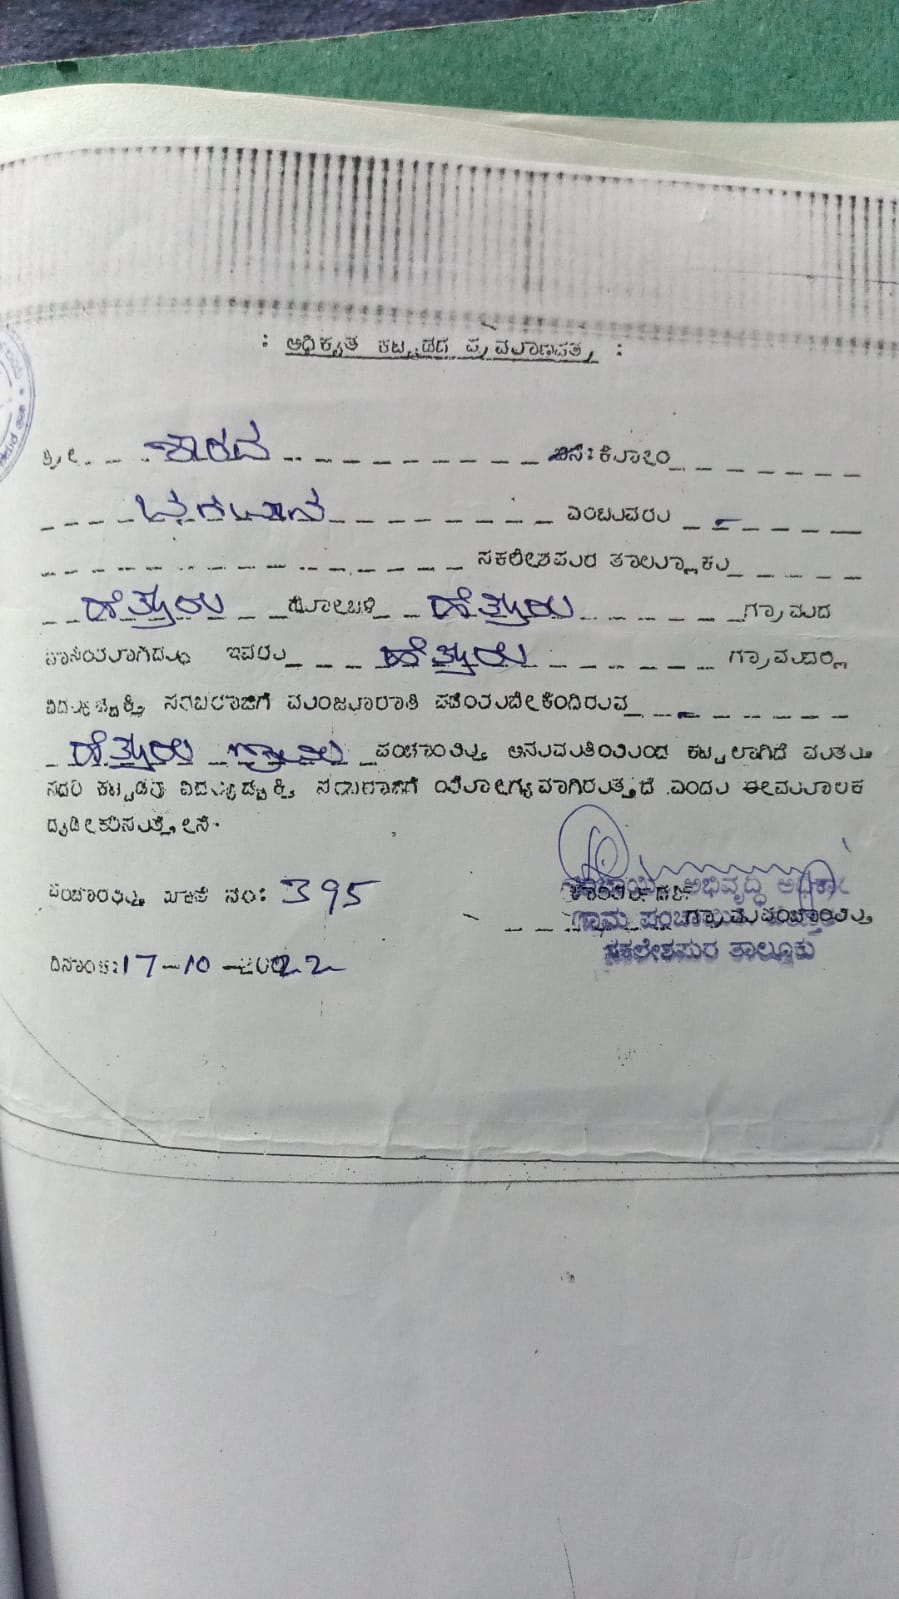 : ಅಧಿಕೃತ ಕಟ್ಟಡದ ಪ್ರಮಾಣಪತ್ರ :
ಶ್ರೀ. ಶಾರದ ಬಿನ್:ಕೋಂ
ಎಂಬುವರು
ಸಕಲೇಶಪುರ ತಾಲ್ಲೂಕು
ಹೆತ್ತೂರು ಹೋಬಳಿ ಹೆತ್ತೂರು ಗ್ರಾಮದ
ವಾಸಿಯಾಗಿದ್ದು ಇವರು ಹೆತ್ತೂರು ಗ್ರಾಮದಲ್ಲಿ
ವಿದ್ಯುಚ್ಛಕ್ತಿ ಸರಬರಾಜಿಗೆ ಮಂಜೂರಾತಿ ಪಡೆಯಬೇಕೆಂದಿರುವ
ಹೆತ್ತೂರು ಗ್ರಾಮ ಪಂಚಾಯಿತಿ ಅನುಮತಿಯಿಂದ ಕಟ್ಟಲಾಗಿದೆ ಮತ್ತು
ಸದರಿ ಕಟ್ಟಡವು ವಿದ್ಯುಚ್ಛಕ್ತಿ ಸರಬರಾಜಿಗೆ ಯೋಗ್ಯವಾಗಿರುತ್ತದೆ ಎಂದು ಈ ಮೂಲಕ
ದೃಢೀಕರಿಸುತ್ತೇನೆ.
ಪಂಚಾಯಿತಿ ಖಾತೆ ನಂ: 395
ಅಭಿವೃದ್ಧಿ ಅಧಿಕಾರಿ
ಕಾರ್ಯದರ್ಶಿ
ಗ್ರಾಮ ಪಂಚಾಯಿತಿ ಗ್ರಾಮಪಂಚಾಯಿತಿ
ಸಕಲೇಶಪುರ ತಾಲ್ಲೂಕು
ದಿನಾಂಕ:17-10-2022